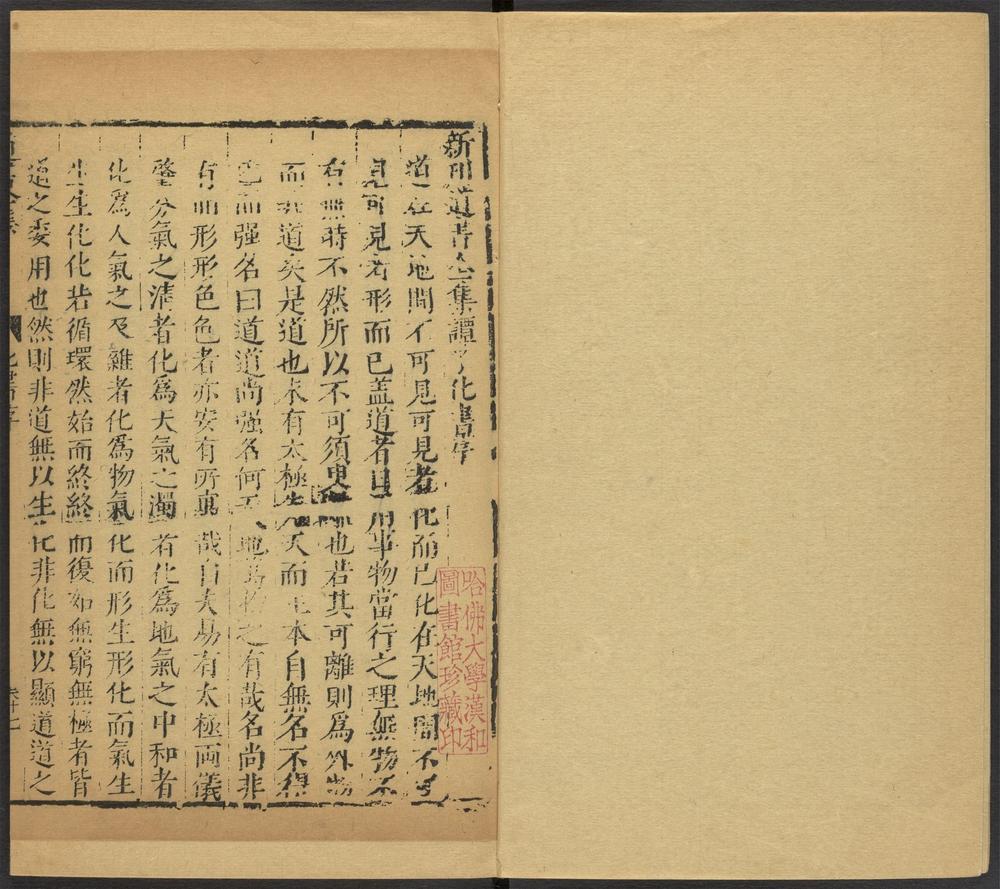 新刊道書全集譚子化書序
道在天地間不可見可見者化而已化在天地間不可
見可見者形而已蓋道者日用事物當行之理無物不
有無時不然所以不可須臾離也若其可離則爲外物
而非道矣是道也未有太極先天而生本自無名不得
已而强名曰道道尚强名何天地萬物之有哉名尚非
有而形形色色者亦安有所眞哉自太易有太極兩儀
肇分氣之清者化爲天氣之濁者化爲地氣之中和者
化爲人氣之雜者化爲物氣化而形生形化而氣生
生生化化若循環然始而終終而復始無窮無極者皆
道之委用也然則非道無以生化非化無以顯道道之
化書序
卷十七
哈佛大學漢和
圖書館珍藏印